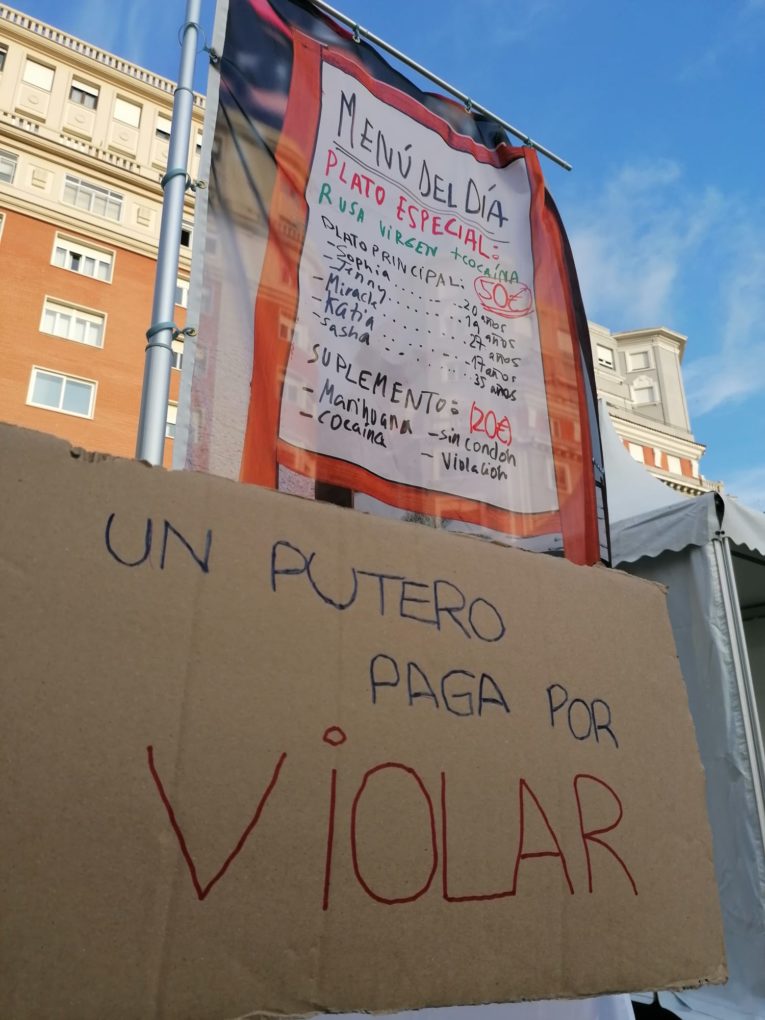 MENÚ DEL DÍA
PLATO ESPECIAL:
RUSA VIRGEN + COCAÍNA
50€
PLATO PRINCIPAL:
- Sophia ........ 20 años
- Jenny ........ 19 años
- Miracle ........ 27 años
- Katia ........ 17 años
- Sasha ........ 35 años
SUPLEMENTO: (20€)
- Marihuana - sin condon
- cocaína - violacion
UN PUTERO
PAGA POR
VIOLAR